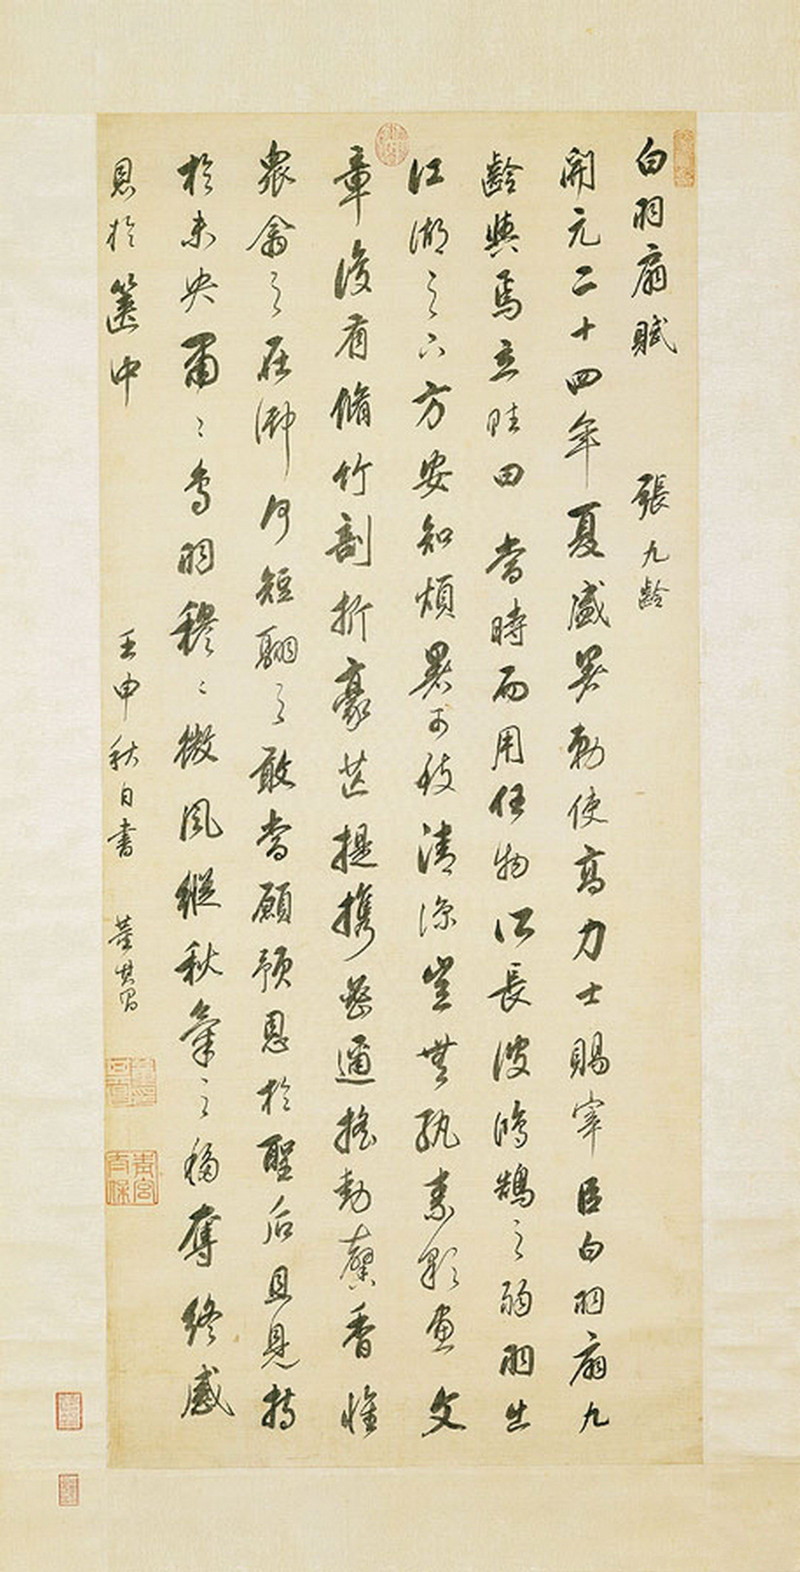 白羽扇賦 張九齡
開元二十四年夏盛暑勅使高力士賜宰臣白羽扇九
齡與焉立賦曰 當時而用任物所長彼鴻鵠之弱羽出
江湖之下方安知煩暑可致清涼豈無紈素彩畫文
章復有脩竹剖析豪芒提攜密邇搖動馨香惟
眾禽之在御何短翮之敢當顧預恩於聖后且見持
於未央肅〻鳥羽穆〻微風縱秋氣之移奪終感
恩於篋中 壬申秋日書 董其昌
青宮太保